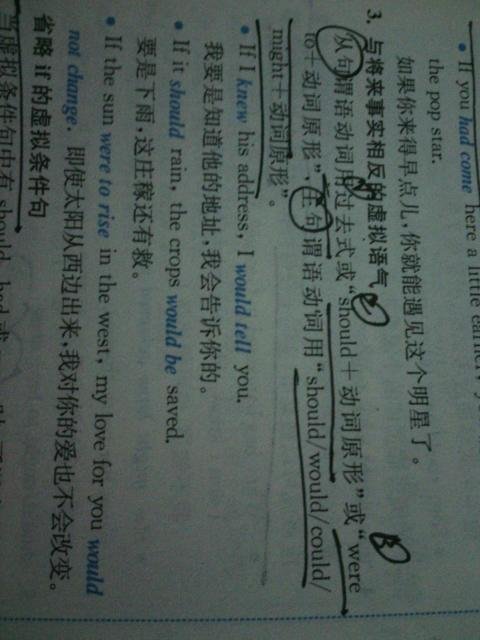 If you had come here a little earlier
the pop star.
如果你来得早点儿,你就能遇见这个明星了。
3. 与将来事实相反的虚拟语气
从句谓语动词用过去式或“should+动词原形”或“were
to+动词原形”,主句谓语动词用“should/would/could/
might+动词原形”。
• If I knew his address, I would tell you.
我要是知道他的地址,我会告诉你的。
• If it should rain, the crops would be saved.
要是下雨,这庄稼还有救。
• If the sun were to rise in the west, my love for you would
not change. 即使太阳从西边出来,我对你的爱也不会改变。
省略 if 的虚拟条件句
当虚拟条件句中有 should, had 或